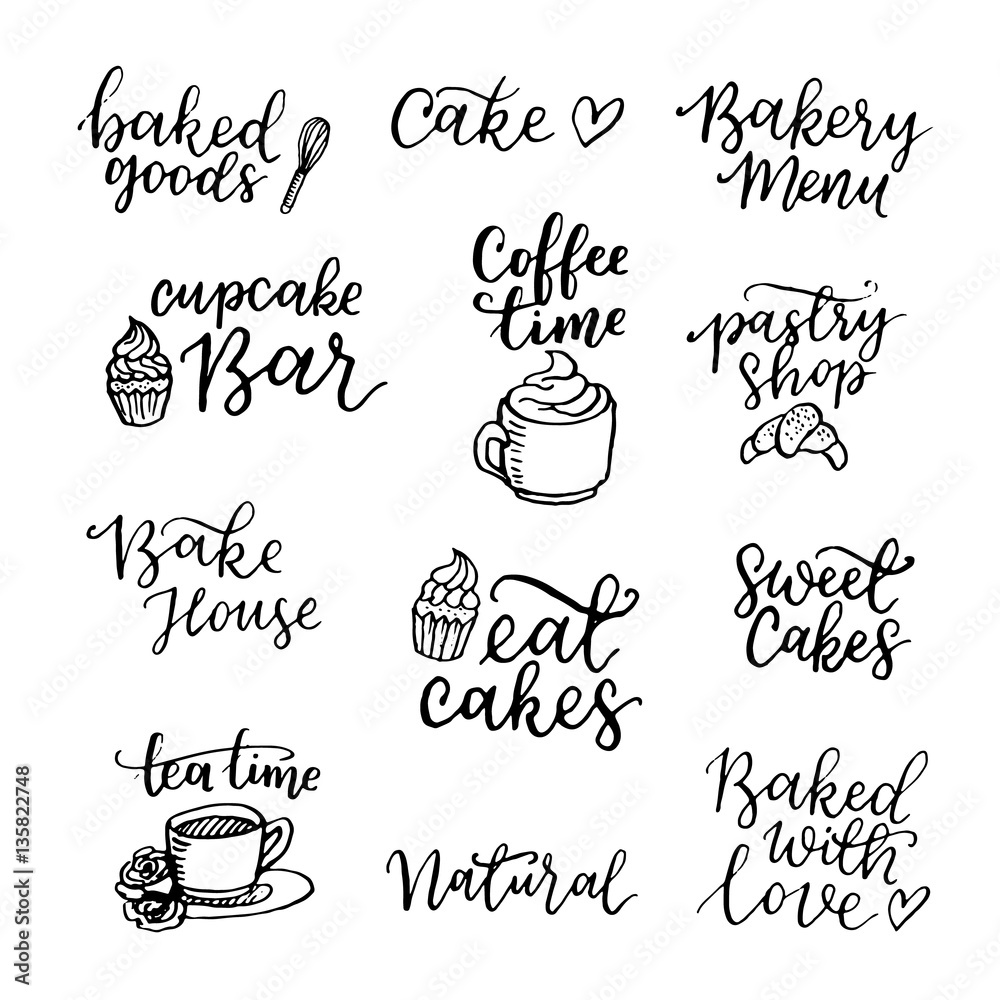 baked
goods
Cake
Bakery
Menu
cupcake
Bar
Coffee
time
pastry
shop
Bake
House
eat
cakes
sweet
Cakes
tea time
Natural
Baked
with
love
Adobe Stock | #135822748